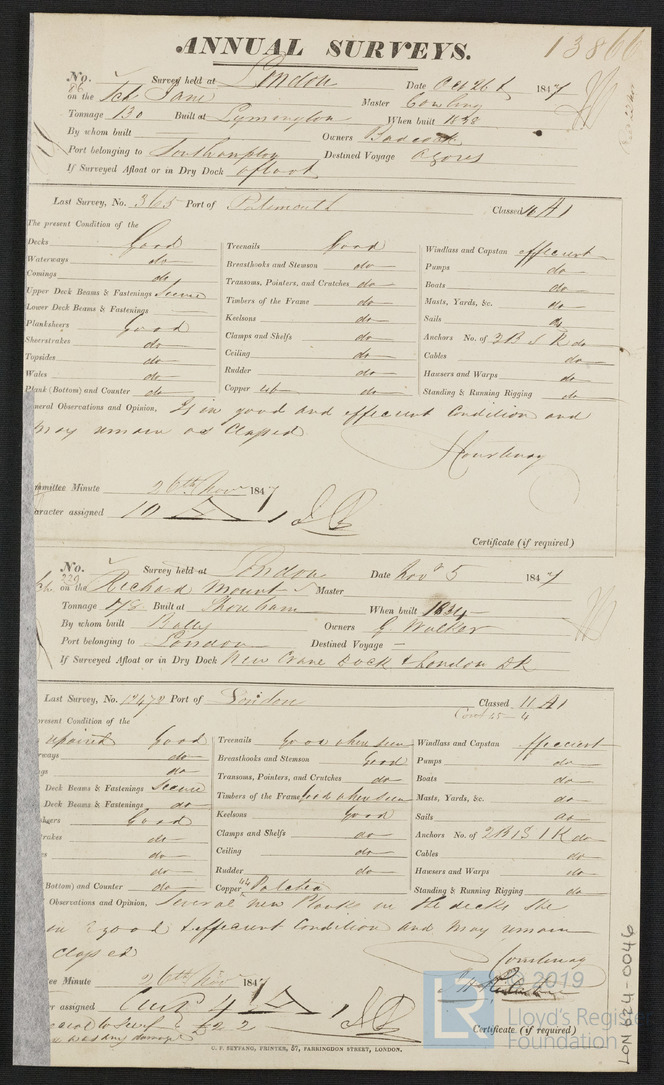 ANNUAL SURVEYS.
13866
No. 86 Survey held at London Date Oct 26 1847
on the Jane Master Cowling
Tonnage 130 Built at Lymington When built 1838
By whom built Owners Badcock
Port belonging to Southampton Destined Voyage Azores
If Surveyed Afloat or in Dry Dock afloat
Last Survey, No. 365 Port of Portsmouth Classed A1
The present Condition of the
Decks Good Treenails Good Windlass and Capstan efficient
Waterways do Breasthooks and Stemson do Pumps do
Comings do Transoms, Pointers, and Crutches do Boats do
Upper Deck Beams & Fastenings Secure Timbers of the Frame do Masts, Yards, &c. do
Lower Deck Beams & Fastenings Keelsons do Sails do
Planksheers Good Clamps and Shelfs do Anchors No. of 3B 1S 1K do
Sheerstrakes do Ceiling do Cables do
Topsides do Rudder do Hawsers and Warps do
Wales do Copper do Standing & Running Rigging do
Plank (Bottom) and Counter do
neral Observations and Opinion, Is in good and efficient Condition and
may remain as Classed
Courtenay
mmittee Minute 26th Novr 1847
aracter assigned 10 A 1
Certificate (if required)
No. 229 Survey held at London Date Novr 5 1847
on the Richard Mount Master
Tonnage Built at Shoreham When built 1834
By whom built Owners G Walker
Port belonging to London Destined Voyage —
If Surveyed Afloat or in Dry Dock New Crane Dock & London Dk
Last Survey, No. 13478 Port of London Classed 11 A1
Cont 45 - 4
present Condition of the
repaired Good Treenails Good when seen Windlass and Capstan efficient
rways do Breasthooks and Stemson Good Pumps do
gs do Transoms, Pointers, and Crutches do Boats do
Deck Beams & Fastenings Secure Timbers of the Frame Good when seen Masts, Yards, &c. do
Deck Beams & Fastenings do Keelsons Good Sails do
heers Good Clamps and Shelfs do Anchors No. of 2B 1S 1K do
trakes do Ceiling do Cables do
es do Rudder do Hawsers and Warps do
do Copper 44 Standing & Running Rigging do
Bottom) and Counter do
Observations and Opinion, Several new Planks in the decks She
in good & efficient Condition and may remain
Classed
Courtenay
ee Minute 26th Novr 1847
er assigned Cont 4 A 1
£2 2
was any damage
Certificate (if required)
C. F. SEYFANG, PRINTER, 57, FARRINGDON STREET, LONDON.
LR
© 2019
Lloyd's Register
Foundation
LON 624-0046